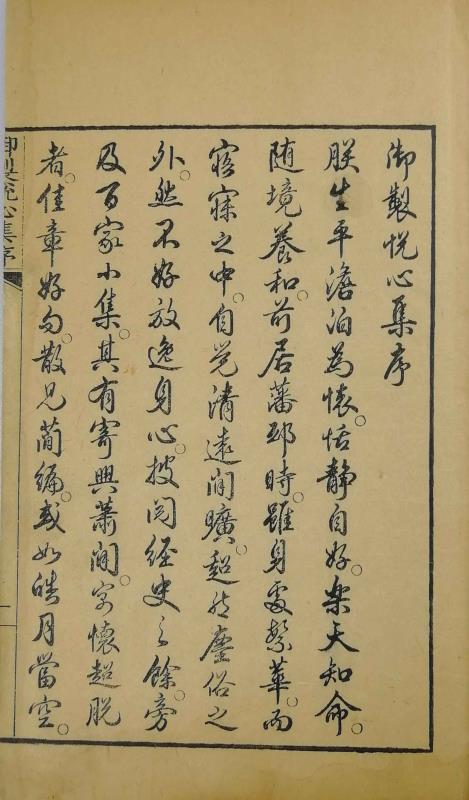 御製悅心集序
朕生平澹泊為懷。恬靜自好。樂天知命。
随境養和。前居藩邸時。雖身處繁華。而
寤寐之中。自覺清遠閒曠。超然塵俗之
外。然不好放逸身心。披閱經史之餘。旁
及百家小集。其有寄興蕭閒。寫懷超脫
者。佳章好句。散見簡編。或如皓月當空。
御製悅心集序
一